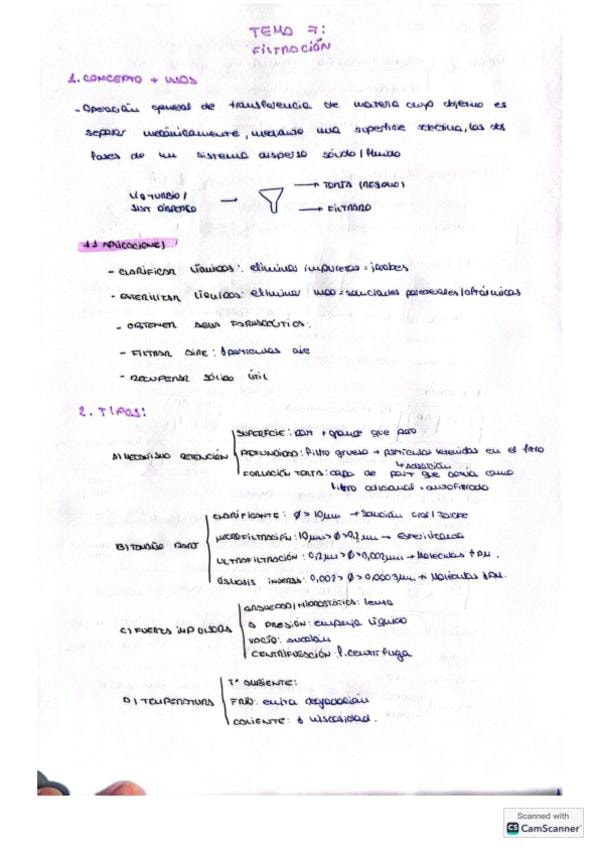 TEMA 7:
FILTRACIÓN
1. CONCEPTO + USOS
- Operación general de transferencia de materia cuyo objetivo es
separar mecánicamente, mediante una superficie, las dos
fases de un sistema disperso sólido/fluido
LIQ TURBIO/ → TORTA (RESIDUO)
SIST DISPERSO → → FILTRADO
1.1 APLICACIONES
- CLARIFICAR LÍQUIDOS: eliminar impurezas = jarabes
- ESTERILIZAR LÍQUIDOS: eliminar = parenterales/oftálmicas
- OBTENER AGUA FARMACÉUTICOS.
- FILTRAR AIRE: ↓ partículas aire
- RECUPERAR SÓLIDO ÚTIL
2. TIPOS:
SUPERFICIE: que poro
A) MECANISMO RETENCIÓN PROFUNDIDAD: Filtro grueso → partículas retenidas en el filtro
Adsorción
FORMACIÓN TORTA: capa de part que actúa como
filtro adicional = autofiltrado
CLARIFICANTE: Ø > 10μm →
B) TAMAÑO PART MICROFILTRACIÓN: 10μm > Ø > 0,2μm →
ULTRAFILTRACIÓN: 0,2μm > Ø > 0,002μm → Moléculas ↑ PM.
ÓSMOSIS INVERSA: 0,002 > Ø > 0,0003μm → Moléculas ↓ PM.
GRAVEDAD/HIDROSTÁTICA: lenta
C) FUERZA IMPULSORA A PRESIÓN: empuja líquido
VACÍO: succión
CENTRIFUGACIÓN: f. centrífuga
Tª AMBIENTE:
D) TEMPERATURA FRÍO: evita degradación
CALIENTE: ↓ viscosidad.
Scanned with
CS CamScanner